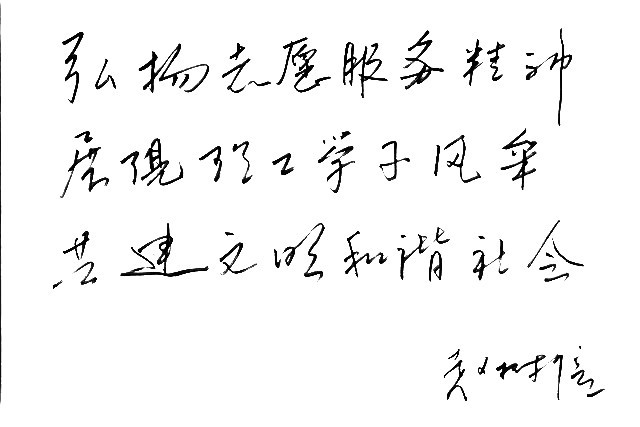 弘扬志愿服务精神
展现理工学子风采
共建文明和谐社会
赵树